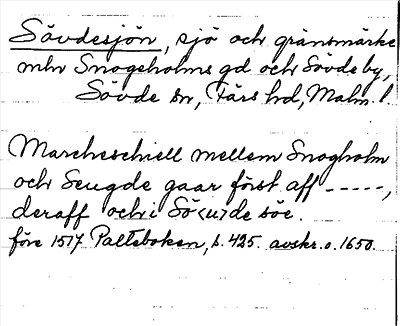 Sövdesjön, sjö och gränsmärke
mln Snogeholms gd och Sövde by,
Sövde sn, Färs hd, Malm. l.
Marcheschiell mellem Snogholm
och Seugde gaar först aff -----,
deraff och i Sö<u>de söe.
före 1517 Palteboken, s. 425. avskr. o. 1650.